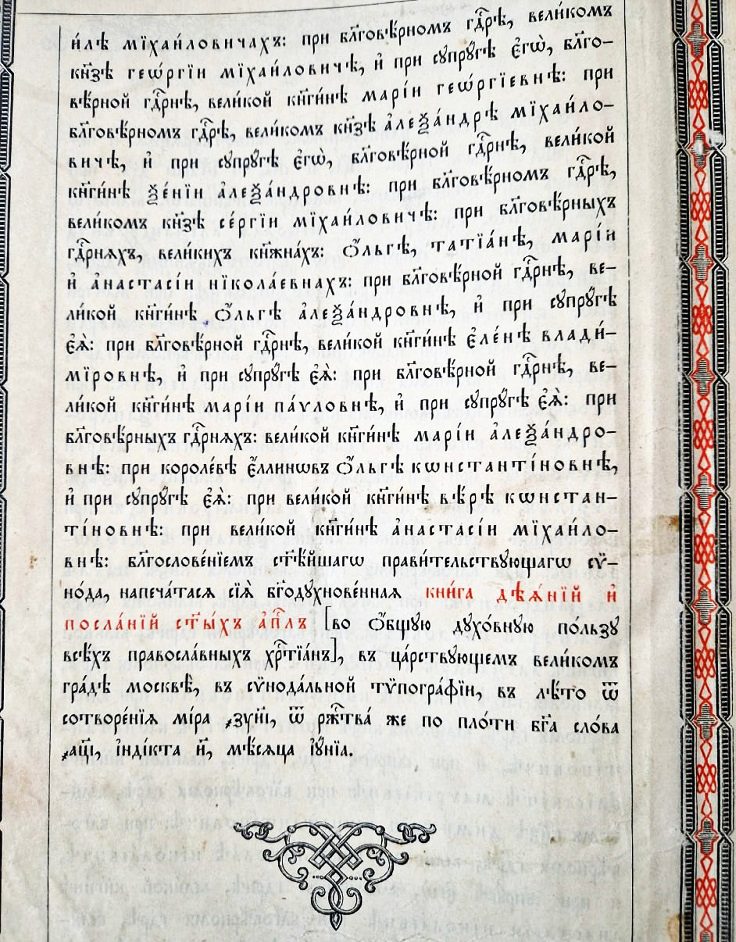 и҆лѣ мїха́иловичахъ: при бл҃говѣ́рномъ гдⷭ҇рѣ, вели́комъ
кн҃зѣ геѡ́ргїи мїха́иловичѣ, и҆ при сꙋпрꙋ́гѣ є҆гѡ̀, бл҃го-
вѣ́рной гдⷭ҇рнѣ, вели́кой кн҃ги́нѣ марі́и геѡ́ргїевнѣ: при
бл҃говѣ́рномъ гдⷭ҇рѣ, вели́комъ кн҃зѣ а҆леѯа́ндрѣ мїха́ило-
вичѣ, и҆ при сꙋпрꙋ́гѣ є҆гѡ̀, бл҃говѣ́рной гдⷭ҇рнѣ, вели́кой
кн҃ги́нѣ ѯе́нїи а҆леѯа́ндровнѣ: при бл҃говѣ́рномъ гдⷭ҇рѣ,
вели́комъ кн҃зѣ се́ргїи мїха́иловичѣ: при бл҃говѣ́рныхъ
гдⷭ҇рнѧхъ, вели́кихъ кнѧжна́хъ: ѻ҆́льгѣ, татїа́нѣ, марі́и
и҆ а҆настасі́и нїкола́евнахъ: при бл҃говѣ́рной гдⷭ҇рнѣ, ве-
ли́кой кн҃ги́нѣ ѻ҆́льгѣ а҆леѯа́ндровнѣ, и҆ при сꙋпрꙋ́гѣ
є҆ѧ̀: при бл҃говѣ́рной гдⷭ҇рнѣ, вели́кой кн҃ги́нѣ є҆ле́нѣ влади́-
мїровнѣ, и҆ при сꙋпрꙋ́гѣ є҆ѧ̀: при бл҃говѣ́рной гдⷭ҇рнѣ, ве-
ли́кой кн҃ги́нѣ марі́и па́ѵловнѣ, и҆ при сꙋпрꙋ́гѣ є҆ѧ̀: при
бл҃говѣ́рныхъ гдⷭ҇рнѧхъ: вели́кой кн҃ги́нѣ марі́и а҆леѯа́ндро-
внѣ: при короле́вѣ є҆́ллинѡвъ ѻ҆́льгѣ кѡнстантї́новнѣ,
и҆ при сꙋпрꙋ́гѣ є҆ѧ̀: при вели́кой кн҃ги́нѣ вѣ́рѣ кѡнстан-
тї́новнѣ: при вели́кой кн҃ги́нѣ а҆настасі́и мїха́ило-
внѣ: бл҃гослове́нїемъ ст҃ѣ́йшагѡ прави́тельствꙋющагѡ сѷ-
но́да, напеча́тасѧ сїѧ̀ бг҃одꙋхнове́ннаѧ кни́га дѣѧ́нїй и҆
посла́нїй ст҃ы́хъ а҆пⷭ҇лъ [во ѻ҆́бщꙋю дꙋхо́внꙋю по́льзꙋ
всѣ́хъ правосла́вныхъ хрⷭ҇тїа́нъ], въ ца́рствꙋющемъ вели́комъ
гра́дѣ москвѣ̀, въ сѷнода́льной тѷпогра́фїи, въ лѣ́то ѿ
сотворе́нїѧ мі́ра ҂зꙋиі҃, ѿ рж҃тва́ же по пло́ти бг҃а сло́ва
҂аці҃, і҆ндї́кта и҃, мѣ́сѧца і҆ꙋ́нїа.